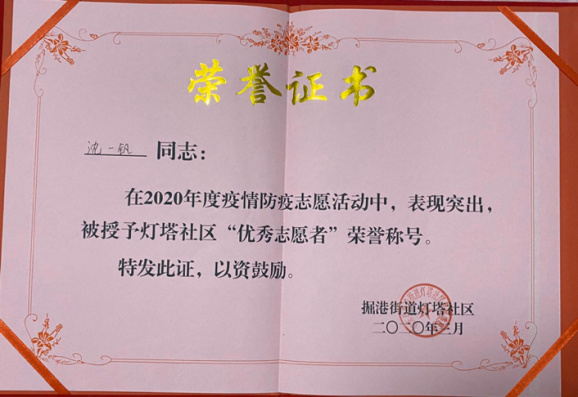 荣誉证书
沈一帆 同志：
在2020年度疫情防疫志愿活动中，表现突出，
被授予灯塔社区“优秀志愿者”荣誉称号。
特发此证，以资鼓励。
掘港街道灯塔社区
二〇二〇年三月